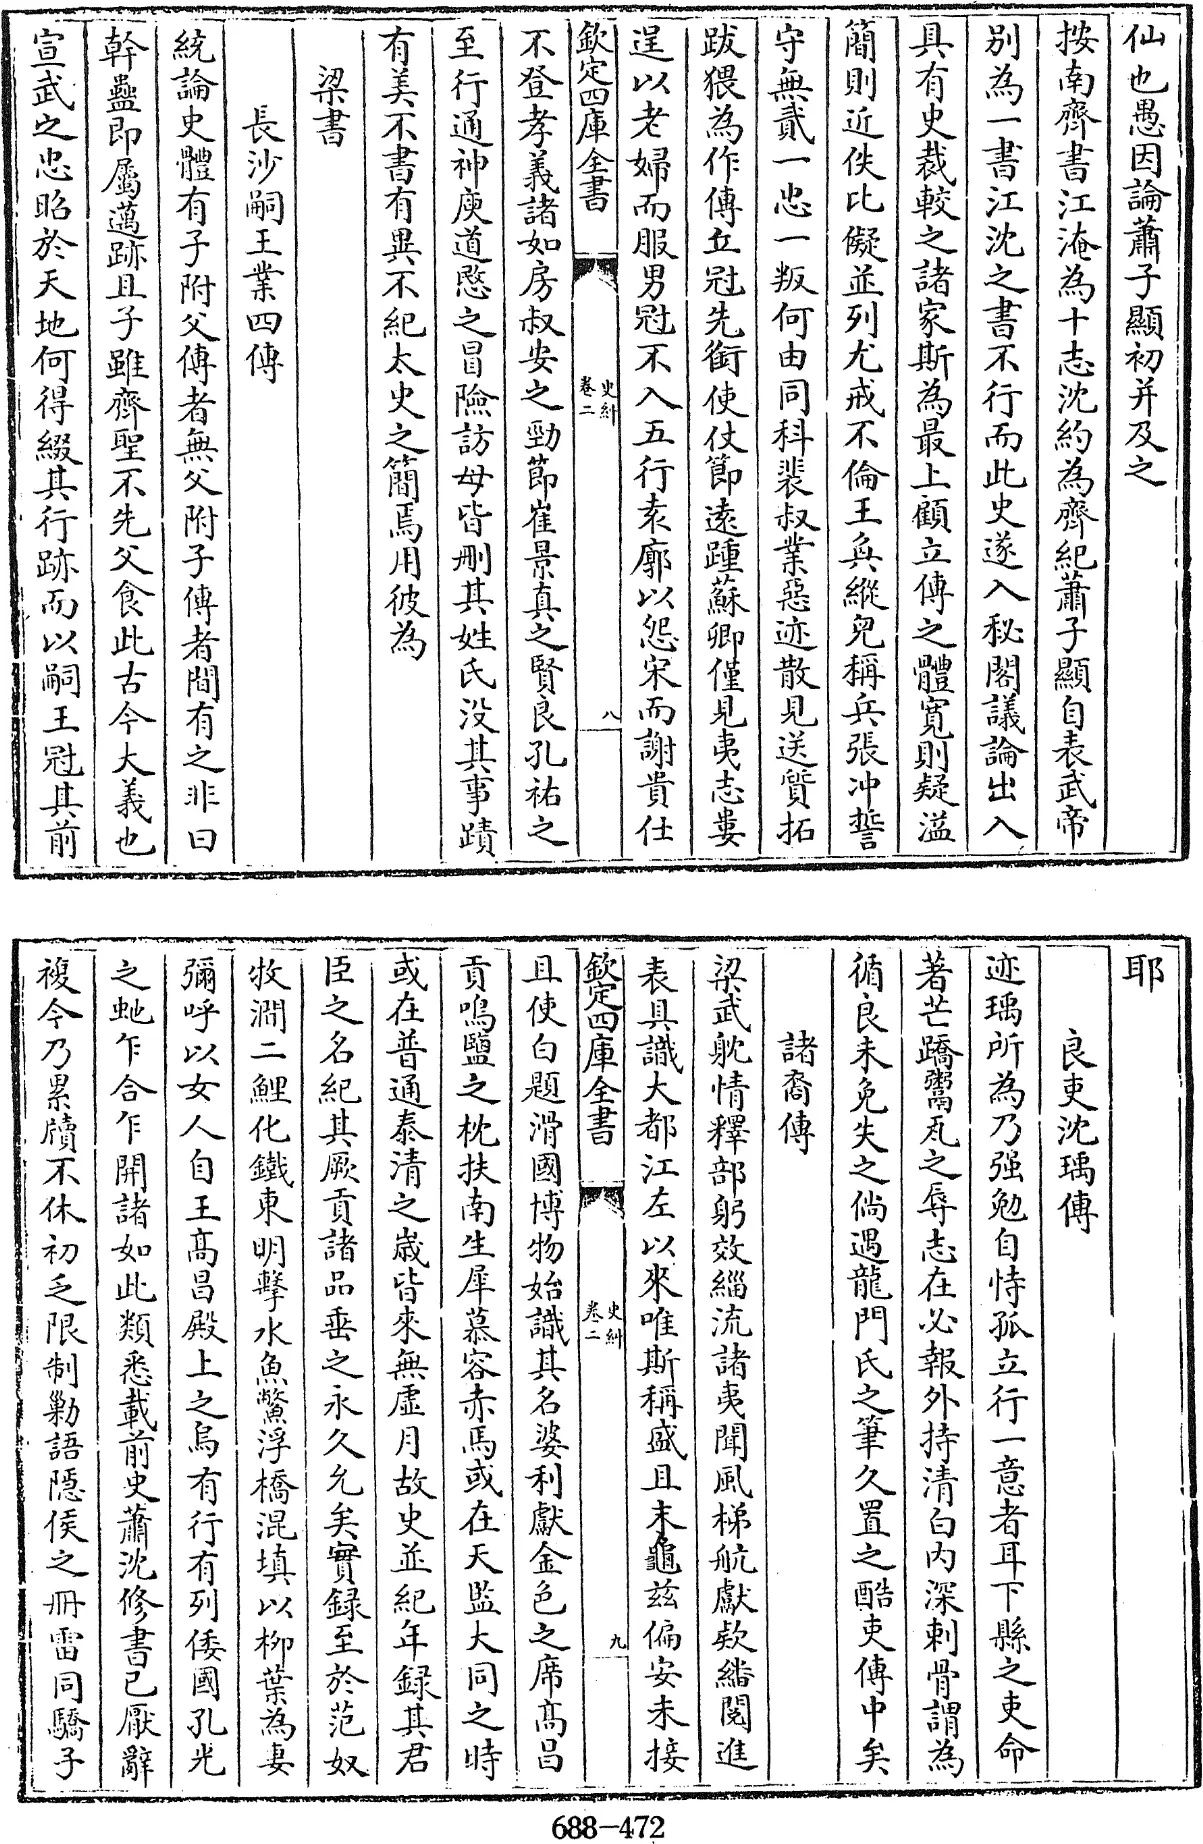 仙也愚因論蕭子顯初并及之
按南齊書江淹為十志沈約為齊紀蕭子顯自表武帝
别為一書江沈之書不行而此史遂入秘閣議論出入
具有史裁較之諸家斯為最上顧立傳之體寛則疑溢
簡則近佚比儗並列尤戒不倫王奐縱兒稱兵張冲誓
守無貳一忠一叛何由同科裴叔業惡迹散見送質拓
跋猥為作傳丘冠先銜使仗節遠踵蘇卿僅見夷志婁
逞以老婦而服男冠不入五行袁廓以怨宋而謝貴仕
欽定四庫全書
史糾
卷二
八
不登孝義諸如房叔安之勁節崔景真之賢良孔祐之
至行通神庾道愍之冒險訪母皆刪其姓氏没其事蹟
有美不書有異不紀太史之簡焉用彼為
梁書
長沙嗣王業四傳
統論史體有子附父傳者無父附子傳者間有之非曰
幹蠱即屬邁跡且子雖齊聖不先父食此古今大義也
宣武之忠昭於天地何得綴其行跡而以嗣王冠其前
耶
良吏沈瑀傳
迹瑀所為乃强勉自恃孤立行一意者耳下縣之吏命
著芒蹻鬻瓦之辱志在必報外持清白内深刺骨謂為
循良未免失之倘遇龍門氏之筆久置之酷吏傳中矣
諸裔傳
梁武躭情釋部躬效緇流諸夷聞風梯航獻欵繙閲進
表具識大都江左以來唯斯稱盛且末龜兹偏安未接
欽定四庫全書
史糾
卷二
九
且使白題滑國博物始識其名婆利獻金色之席髙昌
貢嗚鹽之枕扶南生犀慕容赤馬或在天監大同之時
或在普通泰清之歳皆來無虚月故史並紀年録其君
臣之名紀其厥貢諸品垂之永久允矣實録至於范奴
牧澗二鯉化鐵東明擊水魚鱉浮橋混填以柳葉為妻
彌呼以女人自王髙昌殿上之鳥有行有列倭國孔光
之虵乍合乍開諸如此類悉載前史蕭沈修書已厭辭
複今乃累牘不休初乏限制勦語隱侯之冊雷同驕子
688-472